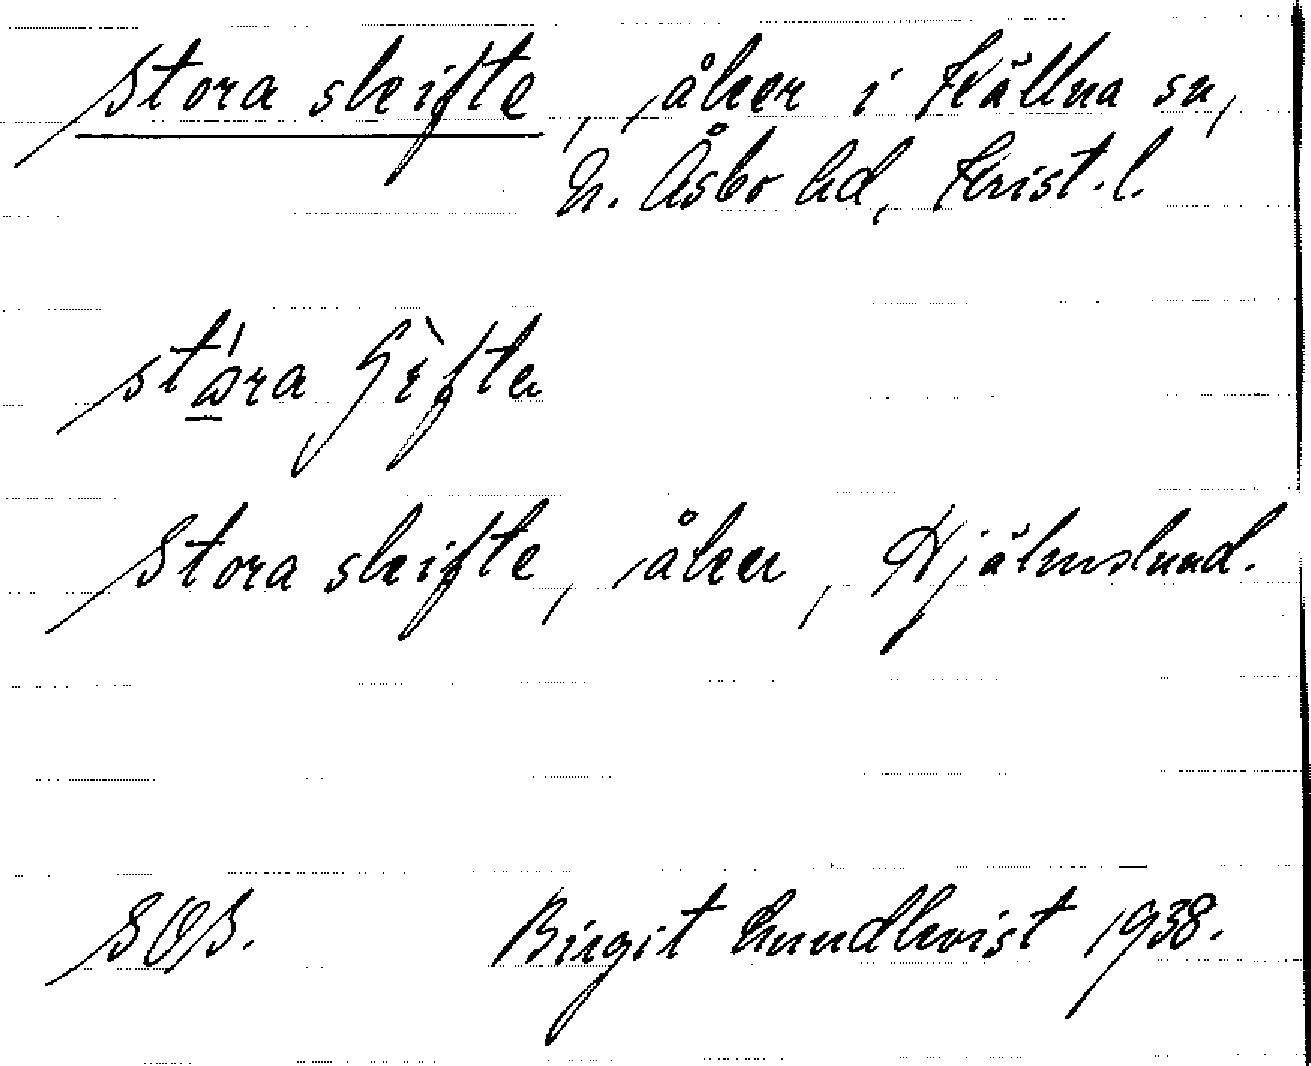 Stora skifte, åker i Källna sn,
N. Åsbo hd, Krist. l.
Stora skifte, åker, Hjälmslund.
SOS. Birgit Lundkvist 1938.